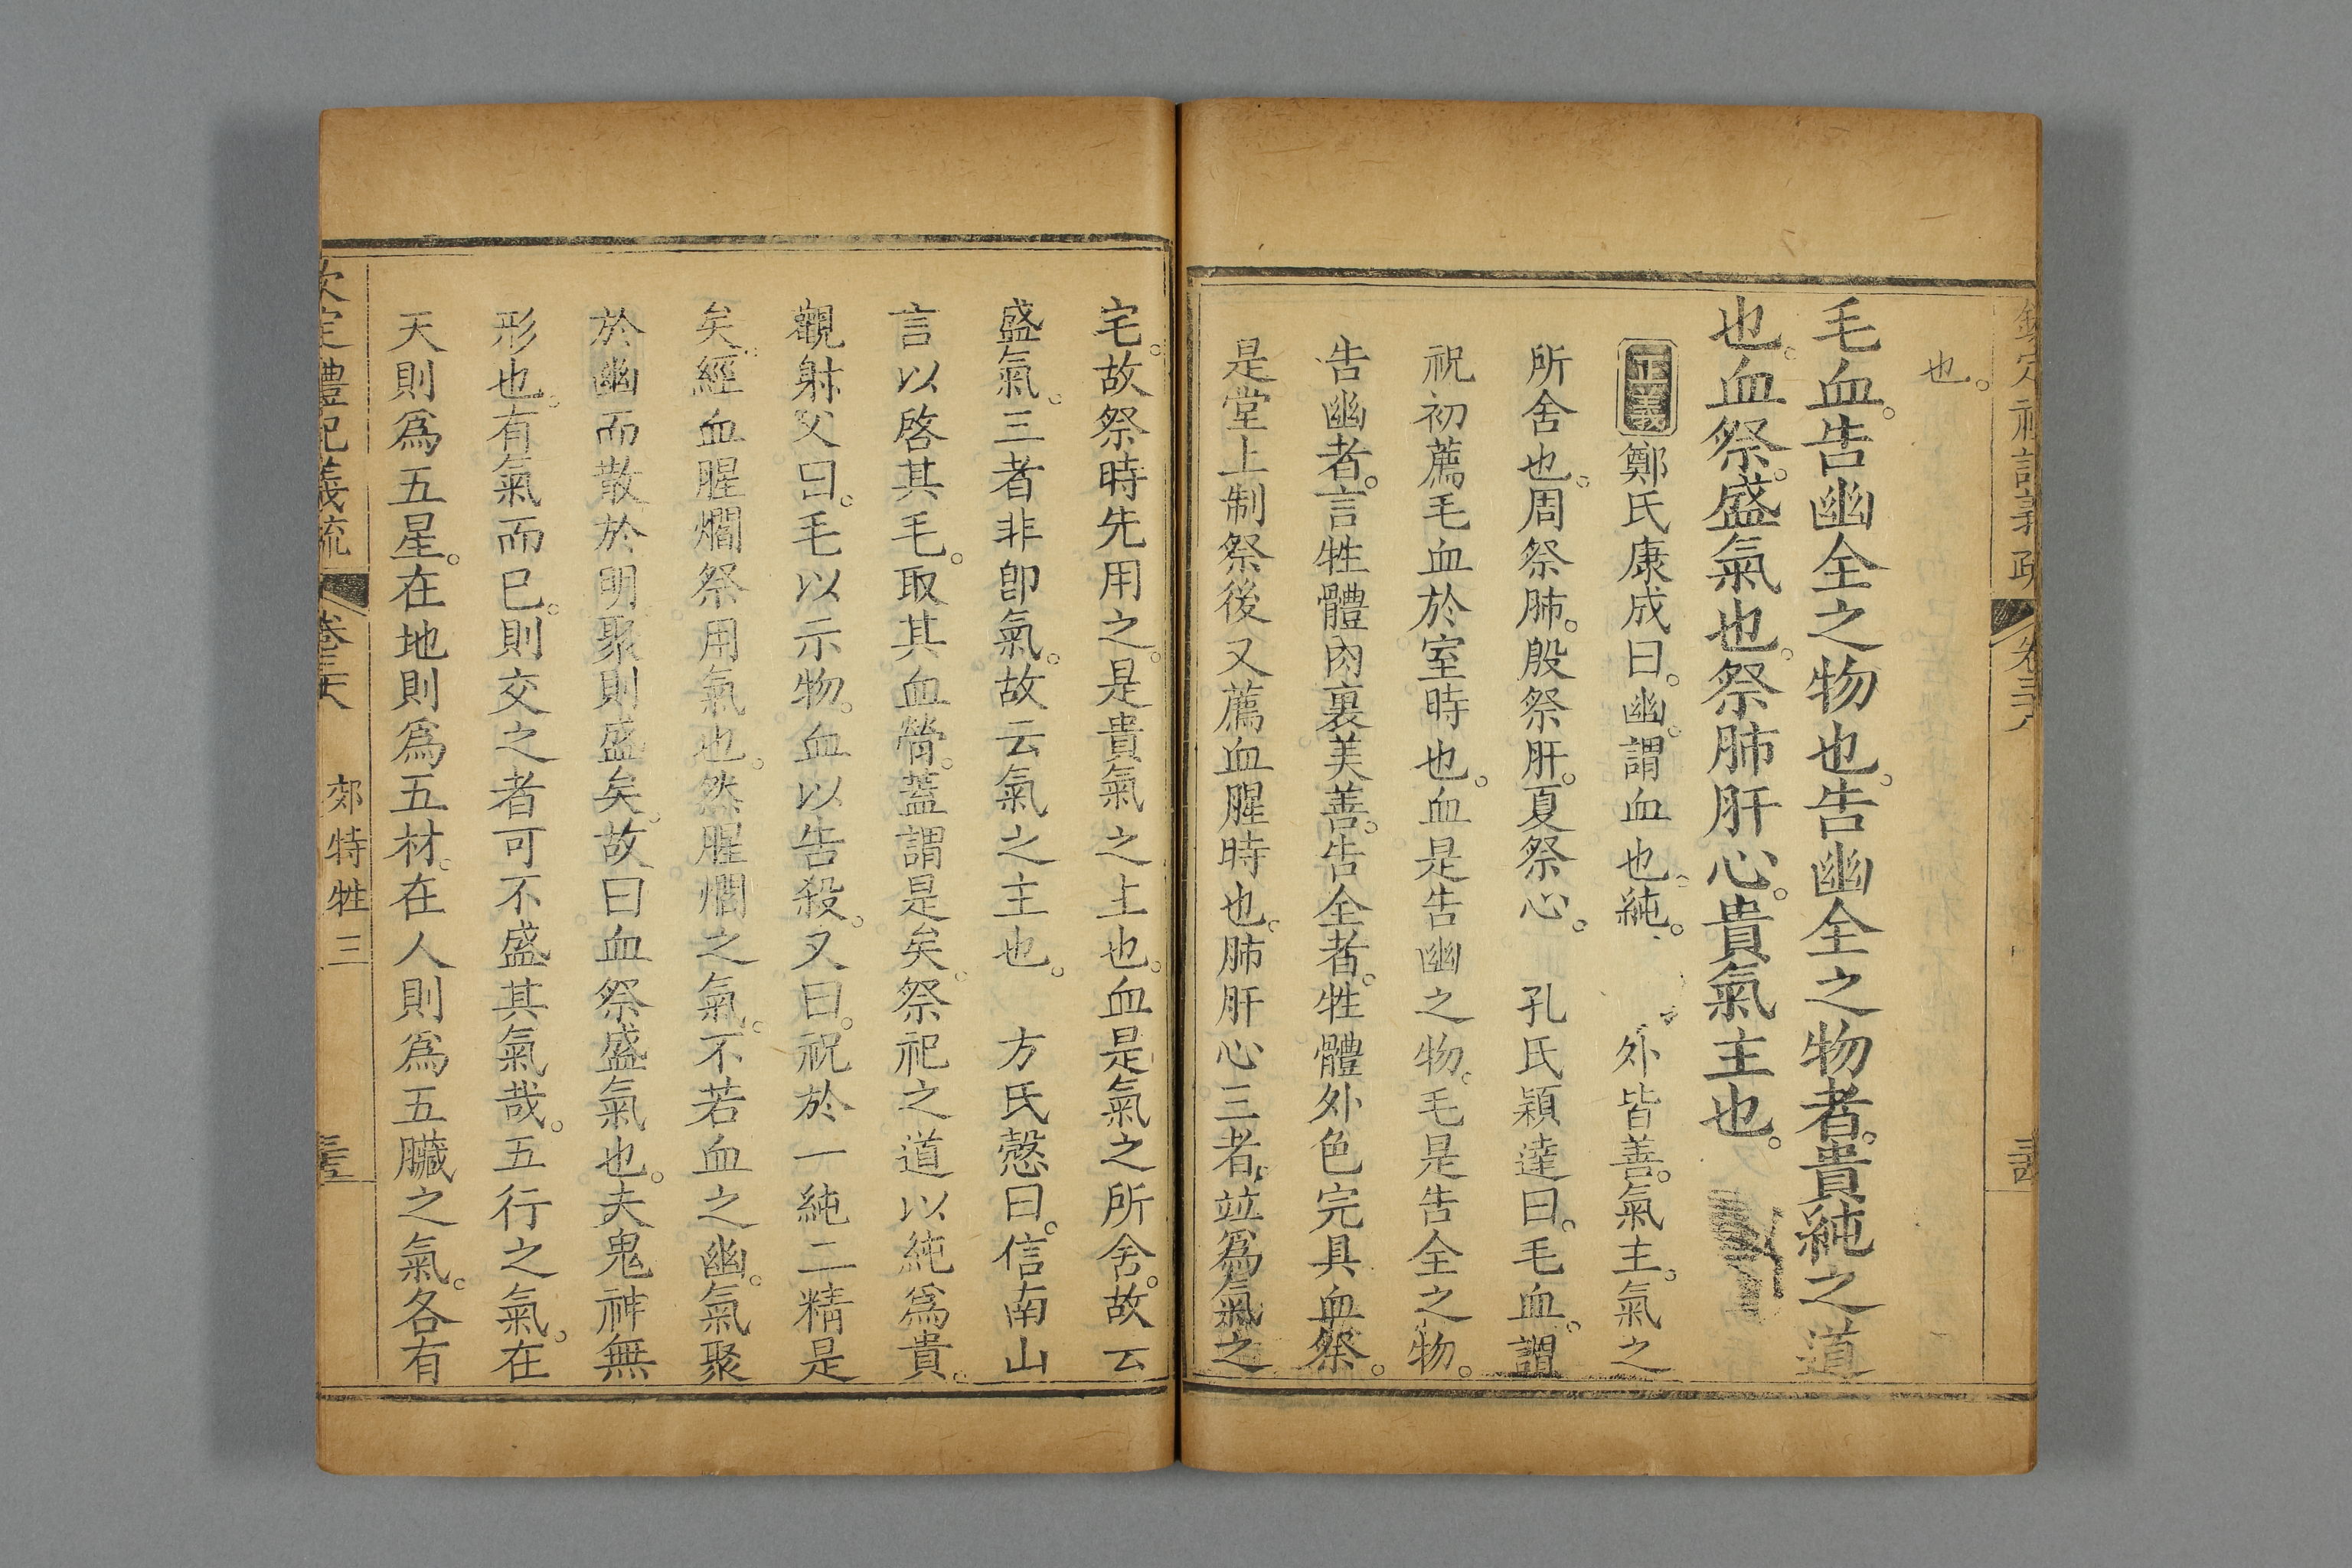 欽定禮記義疏 卷三十六
也。
毛血。告幽全之物也。告幽全之物者。貴純之道
也。血祭。盛氣也。祭肺肝心。貴氣主也。
正義 鄭氏康成曰。幽。謂血也。純。 外皆善。氣主。氣之
所舍也。周祭肺。殷祭肝。夏祭心。 孔氏穎達曰。毛血。謂
祝初薦毛血於室時也。血是告幽之物。毛是告全之物。
告幽者。言牲體肉裏美善。告全者。牲體外色完具。血祭。
是堂上制祭後又薦血腥時也。肺肝心三者。竝爲氣之
宅。故祭時先用之。是貴氣之主也。血是氣之所舍。故云
盛氣。三者非卽氣。故云氣之主也。 方氏慤曰。信南山
言以啓其毛。取其血膋。蓋謂是矣。祭祀之道以純爲貴。
觀射父曰。毛以示物。血以告殺。又曰。祝於一純二精是
矣。經血腥爓祭用氣也。然腥爓之氣。不若血之幽。氣聚
於幽而散於明聚則盛矣。故曰血祭盛氣也。夫鬼神無
形也。有氣而已。則交之者可不盛其氣哉。五行之氣。在
天則爲五星。在地則爲五材。在人則爲五臟之氣。各有
欽定禮記義疏 卷三十六 郊特牲三 三五